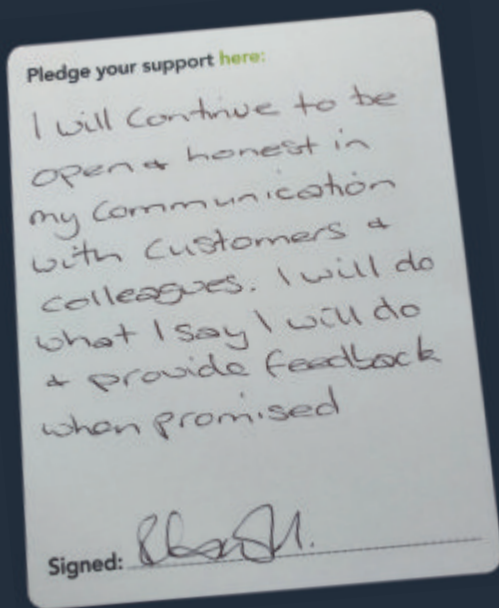 Pledge your support here:
I will continue to be
open & honest in
my communication
with customers &
colleagues. I will do
what I say I will do
& provide feedback
when promised
Signed: